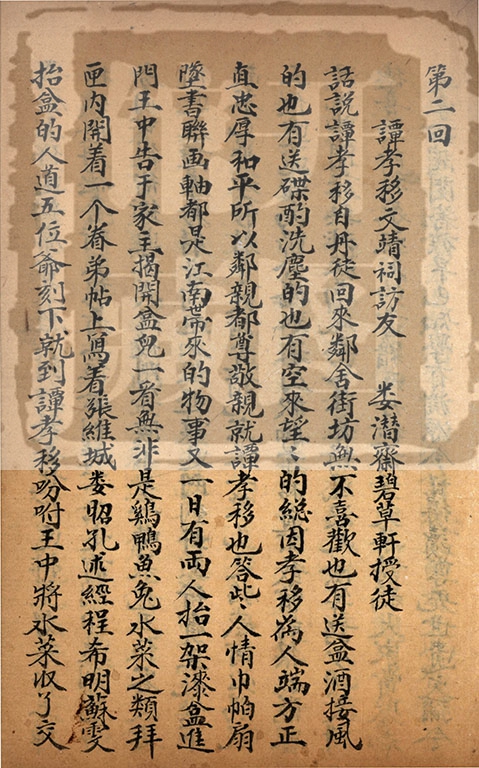 第二回
譚孝移文靖祠訪友　婁潛齋碧草軒授徒
話說譚孝移自丹徒回來鄰舍街坊無不喜歡也有送盒酒接風
的也有送碟酌洗塵的也有空來望〻的總因孝移為人端方正
直忠厚和平所以鄰親都尊敬親就譚孝移也答些人情巾帕扇
墜書聯画軸都是江南帶來的物事又一日有兩人抬一架漆盒進
門王中告于家主揭開盒兒一看無非是鷄鴨魚兔水菜之類拜
匣內開着一个眷弟帖上寫着張維城婁昭孔述經程希明蘇雯
抬盒的人道五位爺刻下就到譚孝移吩咐王中將水菜收了交